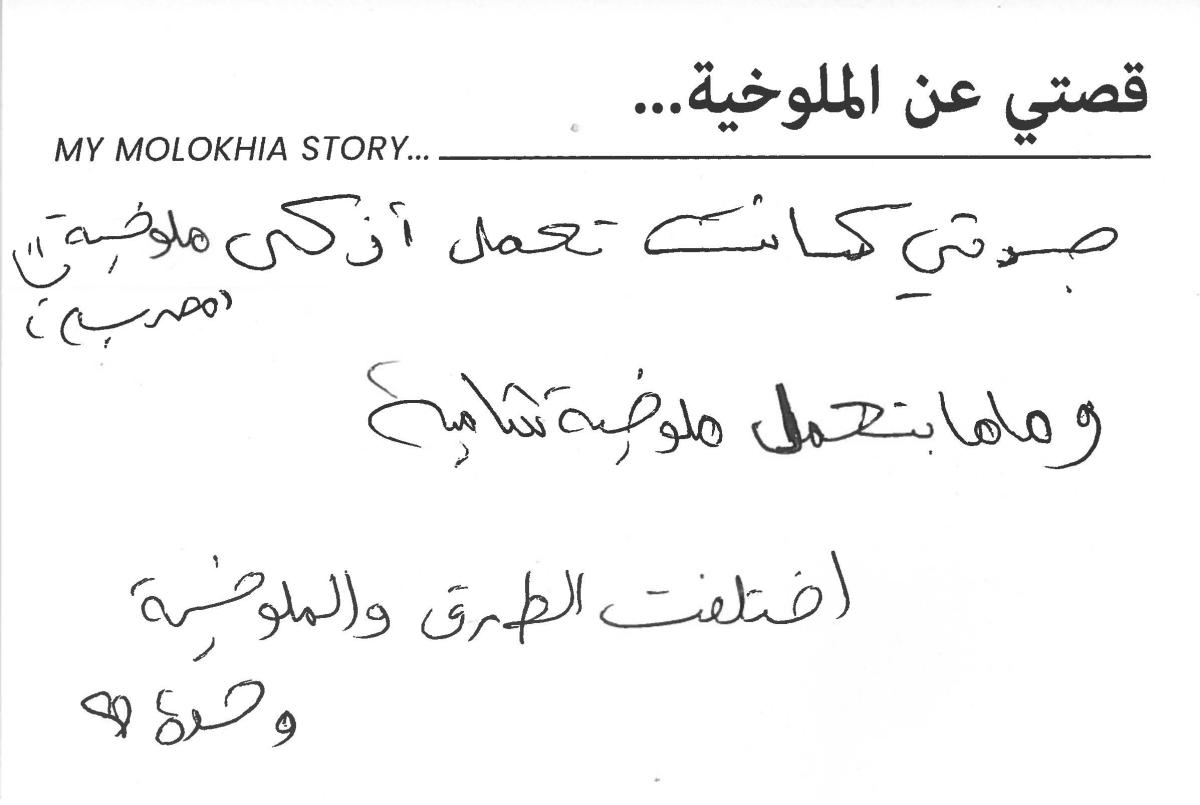 قصتي عن الملوخية...
MY MOLOKHIA STORY...
جدتي كانت تعمل أزكى ملوخية
(مصرية)
وماما بتعمل ملوخية شامية
اختلفت الطرق والملوخية
وحدة